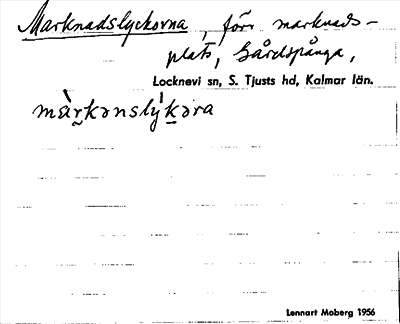 Marknadslyckorna, förr marknads-
plats, Gårdspånga,
Locknevi sn, S. Tjusts hd, Kalmar län.
màrkənslýkəra
Lennart Moberg 1956